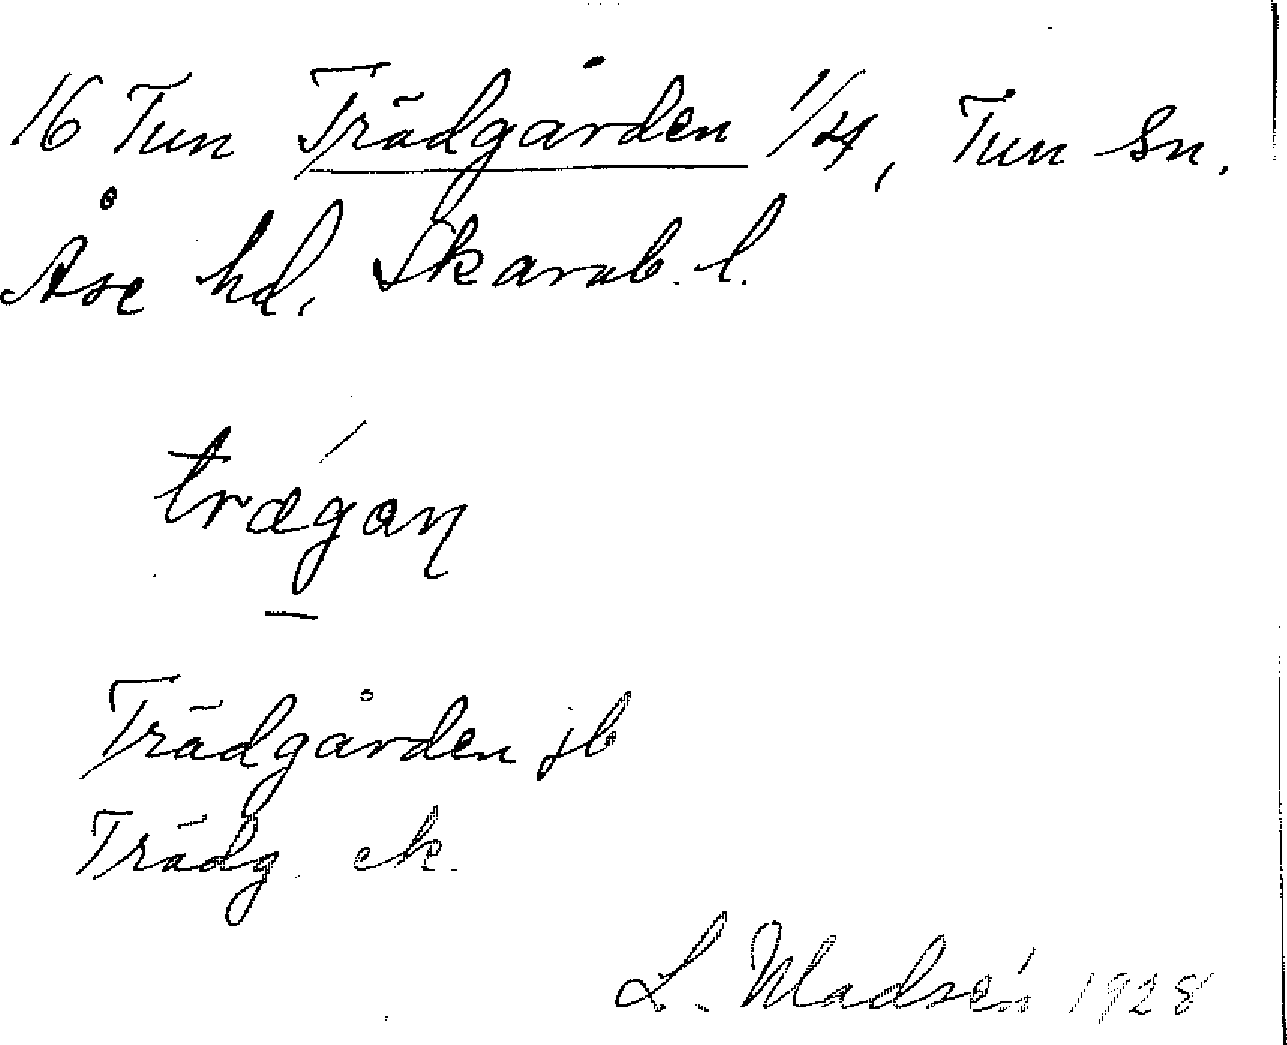 16 Tun Trädgården 1/4, Tun Sn.
Åse hd, Skarab. l.
trǽgaṇ
Trädgården jb
Trädg. ek.
L. Madsén 1928